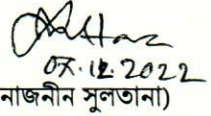 07.12.2022
নাজনীন সুলতানা)